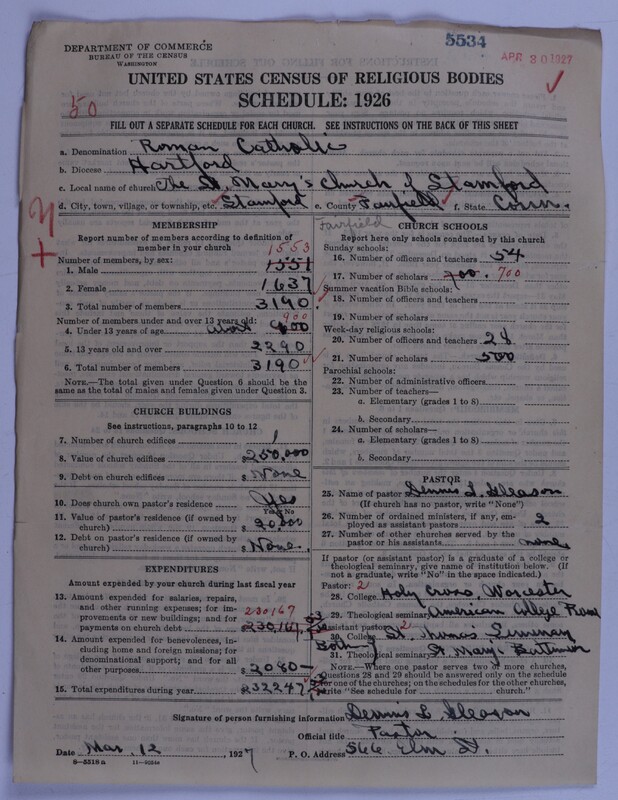 5534
APR 30 1927
DEPARTMENT OF COMMERCE
BUREAU OF THE CENSUS
WASHINGTON
UNITED STATES CENSUS OF RELIGIOUS BODIES
SCHEDULE: 1926
50
FILL OUT A SEPARATE SCHEDULE FOR EACH CHURCH. SEE INSTRUCTIONS ON THE BACK OF THIS SHEET
a. Denomination Roman Catholic
b. Diocese Hartford
c. Local name of church The St. Mary's Church of Stamford
d. City, town, village, or township, etc. Stamford e. County Fairfield f. State Conn.
Fairfield
MEMBERSHIP
Report number of members according to definition of
member in your church
Number of members, by sex: 1553
1. Male 1551
2. Female 1637
3. Total number of members 3190
Number of members under and over 13 years old: 900
4. Under 13 years of age about
5. 13 years old and over 2290
6. Total number of members 3190
NOTE.—The total given under Question 6 should be
same as the total of males and females given under Question 3.
CHURCH BUILDINGS
See instructions, paragraphs 10 to 12
7. Number of church edifices 1
8. Value of church edifices $ 250,000
9. Debt on church edifices $ None
10. Does church own pastor's residence Yes
Yes or No
11. Value of pastor's residence (if owned by
church) $ 20,000
12. Debt on pastor's residence (if owned by
church) $ None.
EXPENDITURES
Amount expended by your church during last fiscal year
13. Amount expended for salaries, repairs,
and other running expenses; for im-
provements or new buildings; and for 230167
payments on church debt $ 230,167
14. Amount expended for benevolences,
including home and foreign missions; for
denominational support; and for all
other purposes $ 2080—
15. Total expenditures during year $ 232247
CHURCH SCHOOLS
Report here only schools conducted by this church
Sunday schools:
16. Number of officers and teachers 54
17. Number of scholars 700. 700
Summer vacation Bible schools:
18. Number of officers and teachers
19. Number of scholars
Week-day religious schools:
20. Number of officers and teachers 28
21. Number of scholars 500
Parochial schools:
22. Number of administrative officers
23. Number of teachers—
a. Elementary (grades 1 to 8)
b. Secondary
24. Number of scholars—
a. Elementary (grades 1 to 8)
b. Secondary
PASTOR
25. Name of pastor Dennis L. Gleason
(If church has no pastor, write "None")
26. Number of ordained ministers, if any, em-
ployed as assistant pastors 2
27. Number of other churches served by the
pastor or his assistants none
If pastor (or assistant pastor) is a graduate of a college or
theological seminary, give name of institution below. (If
not a graduate, write "No" in the space indicated.)
Pastor: 2
28. College Holy Cross Worcester
29. Theological seminary American College Rome
Assistant pastor: 2
30. College St. Thomas Seminary
Both
31. Theological seminary St. Mary's Baltimore
NOTE.—Where one pastor serves two or more churches,
Questions 28 and 29 should be answered only on the schedule
for one of the churches; on the schedules for the other churches,
write "See schedule for church."
Signature of person furnishing information Dennis L. Gleason
Official title Pastor
Date Mar. 12 1927 P. O. Address 566 Elm St.
8—5518 a 11—9524a